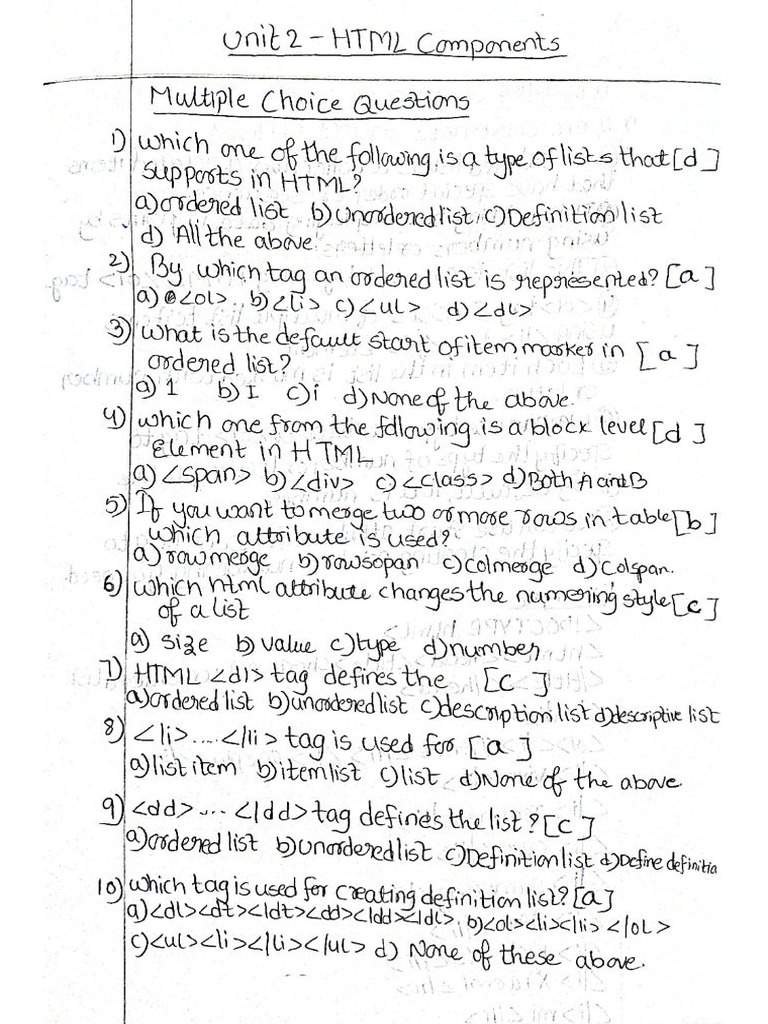 Unit 2 - HTML Components
Multiple Choice Questions
1) which one of the following is a type of lists that [d]
supports in HTML?
a) ordered list b) unordered list c) Definition list
d) All the above
2) By which tag an ordered list is represented? [a]
a) <ol> b) <li> c) <ul> d) <dl>
3) What is the default start of item marker in [a]
ordered list?
a) 1 b) I c) i d) None of the above.
4) which one from the following is a block level [d]
Element in HTML
a) <span> b) <div> c) <class> d) Both A and B
5) If you want to merge two or more rows in table [b]
which attribute is used?
a) rowmerge b) rowsopan c) colmerge d) Colspan.
6) which html attribute changes the numering style [c]
of a list
a) size b) value c) type d) number
7) HTML <dl> tag defines the [c]
a) ordered list b) unordered list c) description list d) descriptive list
8) <li> .... </li> tag is used for [a]
a) list item b) item list c) list d) None of the above.
9) <dd> ... </dd> tag defines the list? [c]
a) ordered list b) unordered list c) Definition list d) Define definitia
10) which tag is used for creating definition list? [a]
a) <dl><dt></dt><dd></dd></dl>. b) <ol><li></li> </ol>
c) <ul><li></li></ul> d) None of these above.